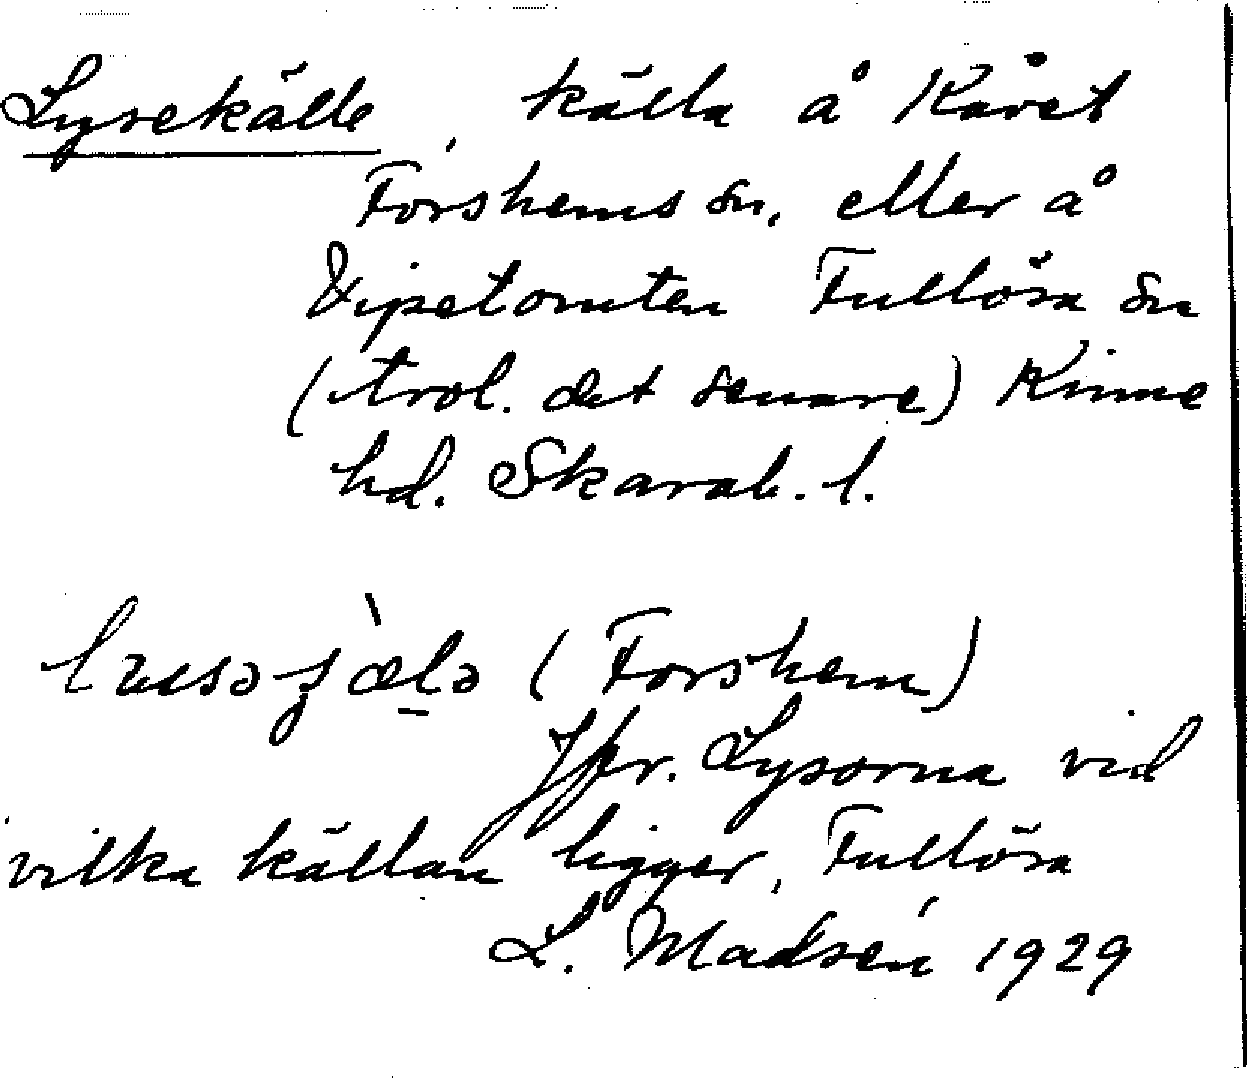 Lysekälle, källa å Kåret
Forshems sn, eller å
Vipetomten Fullösa sn
(trol. det senare) Kinne
hd. Skarab. l.
(Forshem)
Jfr. Lysorna vid
vilka källan ligger, Fullösa
L. Madsén 1929